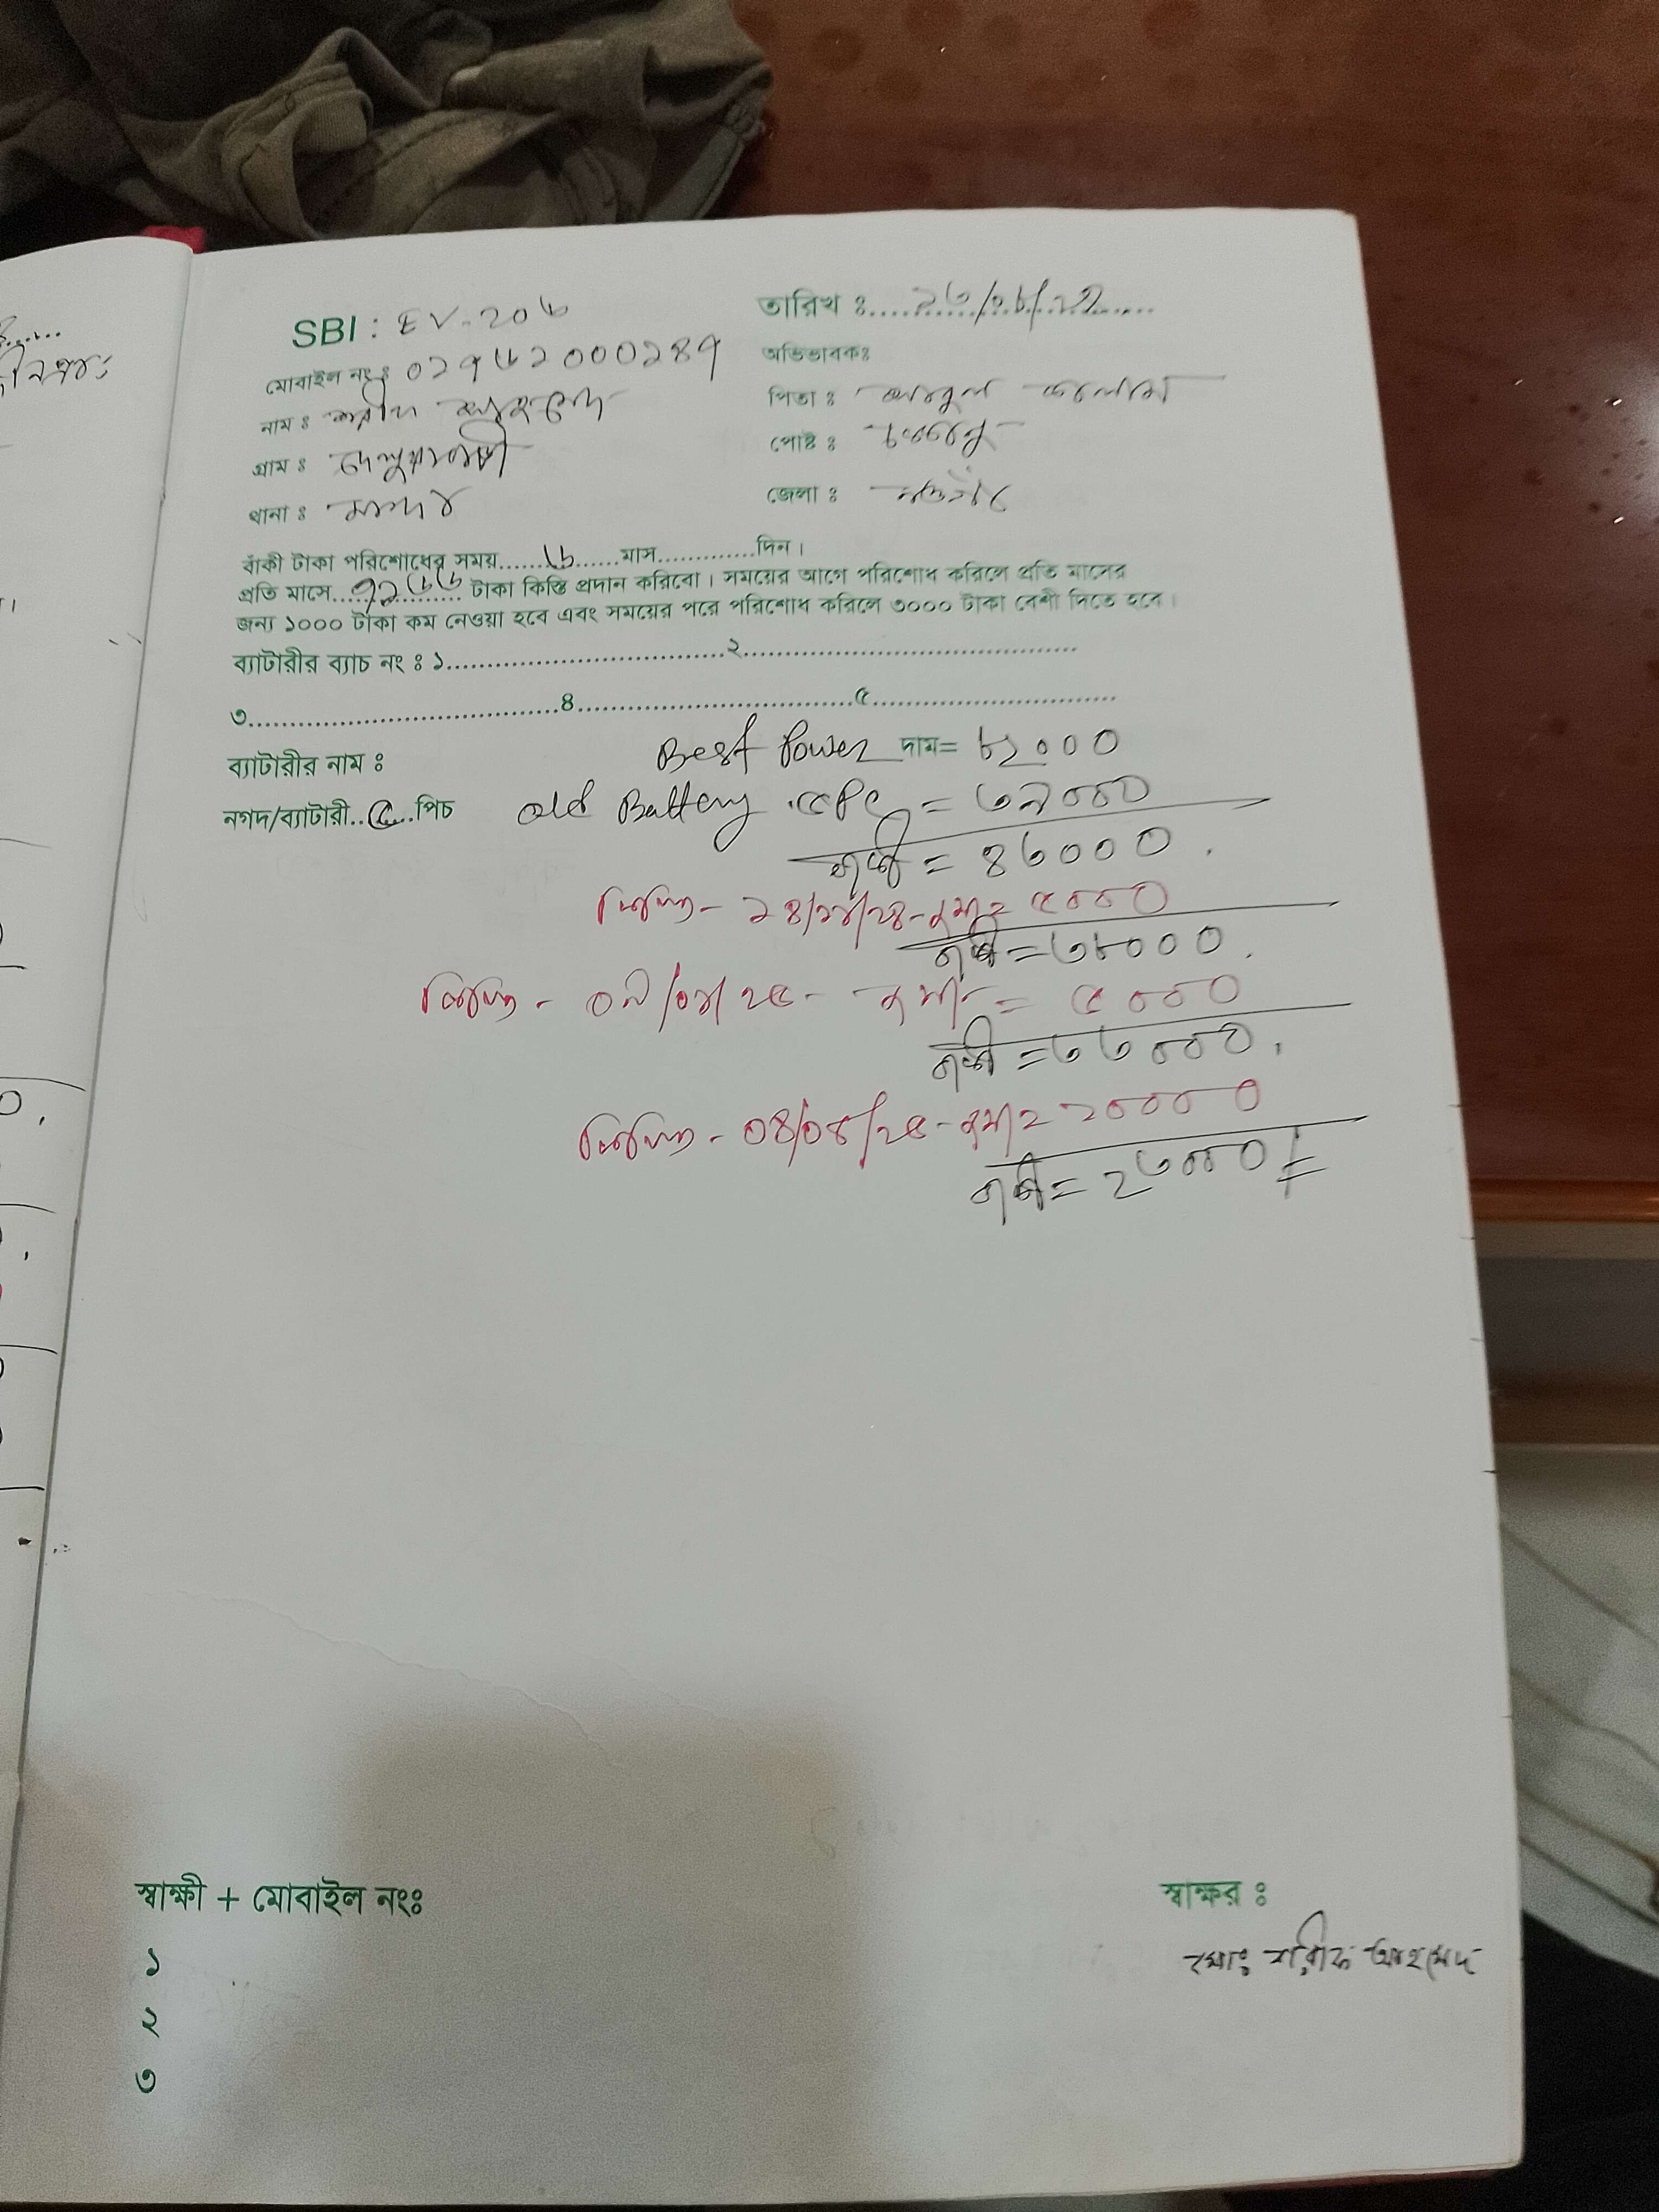 SBI : EV-20৬ তারিখ ঃ
মোবাইল নং ঃ ০১৭৬২০০০১৪৭ অভিভাবকঃ
নাম ঃ শরীফ আহমেদ পিতা ঃ আবুল কালাম
গ্রাম ঃ পোষ্ট ঃ
থানা ঃ জেলা ঃ নওগাঁ
বাঁকী টাকা পরিশোধের সময়......৬......মাস.............দিন।
প্রতি মাসে..৭১৬৬.. টাকা কিস্তি প্রদান করিবো। সময়ের আগে পরিশোধ করিলে প্রতি মাসের
জন্য ১০০০ টাকা কম নেওয়া হবে এবং সময়ের পরে পরিশোধ করিলে ৩০০০ টাকা বেশী দিতে হবে।
ব্যাটারীর ব্যাচ নং ঃ ১................................২................................
৩................................৪................................৫................................
ব্যাটারীর নাম ঃ Best Power দাম= ৮২০০০
নগদ/ব্যাটারী..৫...পিচ Old Battery ৫PC = ৩৯০০০
বাকী = ৪৩০০০.
কিস্তি - ১৪/১২/২৪ - জমা = ৫০০০
বাকী = ৩৮০০০.
কিস্তি - ০৯/০২/২৫ - জমা = ৫০০০
বাকী = ৩৩০০০.
কিস্তি - ০৪/০৫/২৫ - জমা = ১০০০০
বাকী = ২৩০০০/=
স্বাক্ষী + মোবাইল নংঃ স্বাক্ষর ঃ
১ মোঃ শরীফ আহমেদ
২
৩